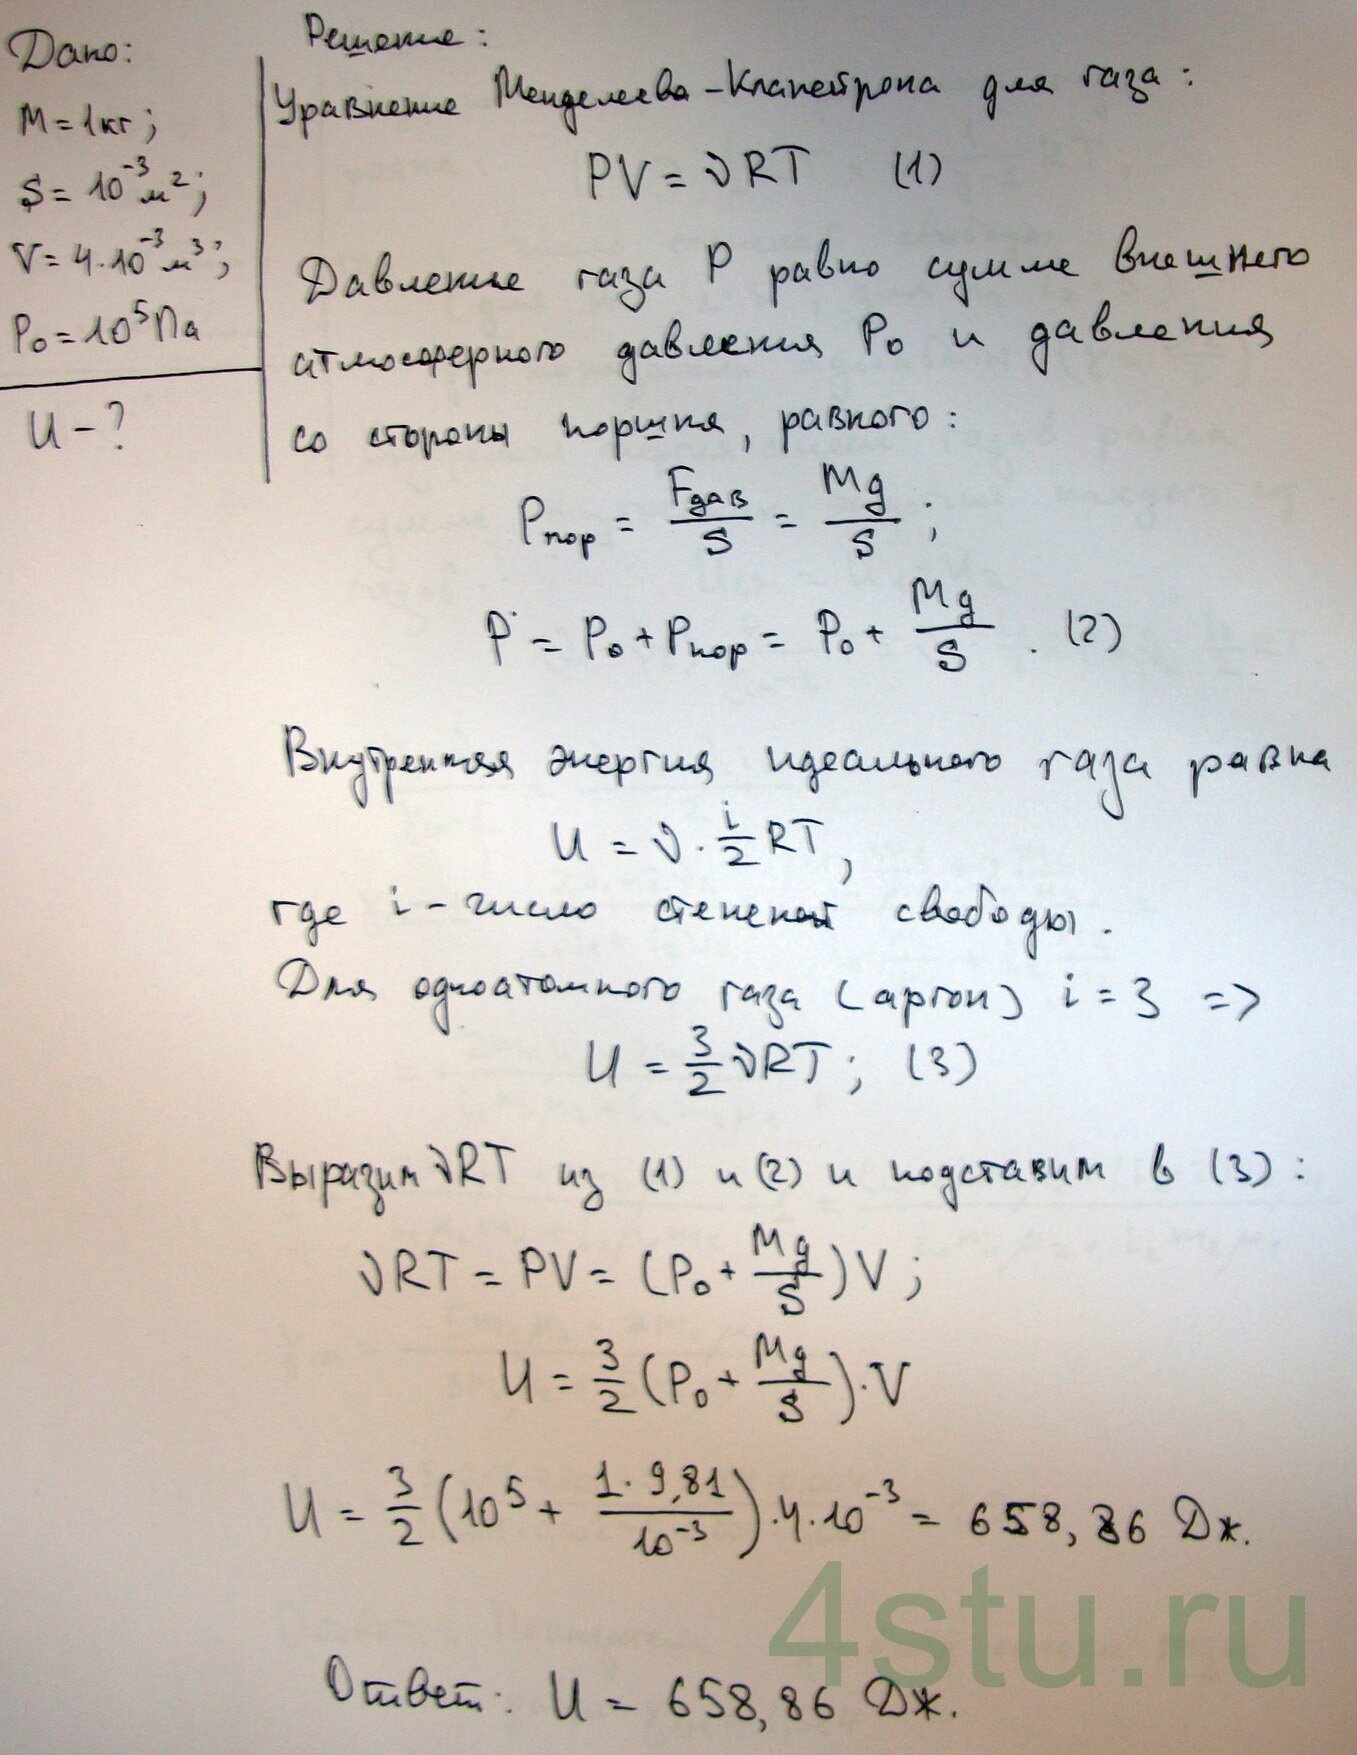 Дано:
M = 1кг;
S = 10⁻³ м²;
V = 4·10⁻³ м³;
P₀ = 10⁵ Па
U - ?
Решение:
Уравнение Менделеева-Клапейрона для газа:
PV = νRT (1)
Давление газа P равно сумме внешнего
атмосферного давления P₀ и давления
со стороны поршня, равного:
Pпор = Fдав/S = Mg/S;
P = P₀ + Pпор = P₀ + Mg/S. (2)
Внутренняя энергия идеального газа равна
U = ν · i/2 RT,
где i - число степеней свободы.
Для одноатомного газа (аргон) i = 3 =>
U = 3/2 νRT; (3)
Выразим νRT из (1) и (2) и подставим в (3):
νRT = PV = (P₀ + Mg/S)V;
U = 3/2 (P₀ + Mg/S)·V
U = 3/2 (10⁵ + 1·9,81/10⁻³)·4·10⁻³ = 658,86 Дж.
4stu.ru
Ответ: U = 658,86 Дж.